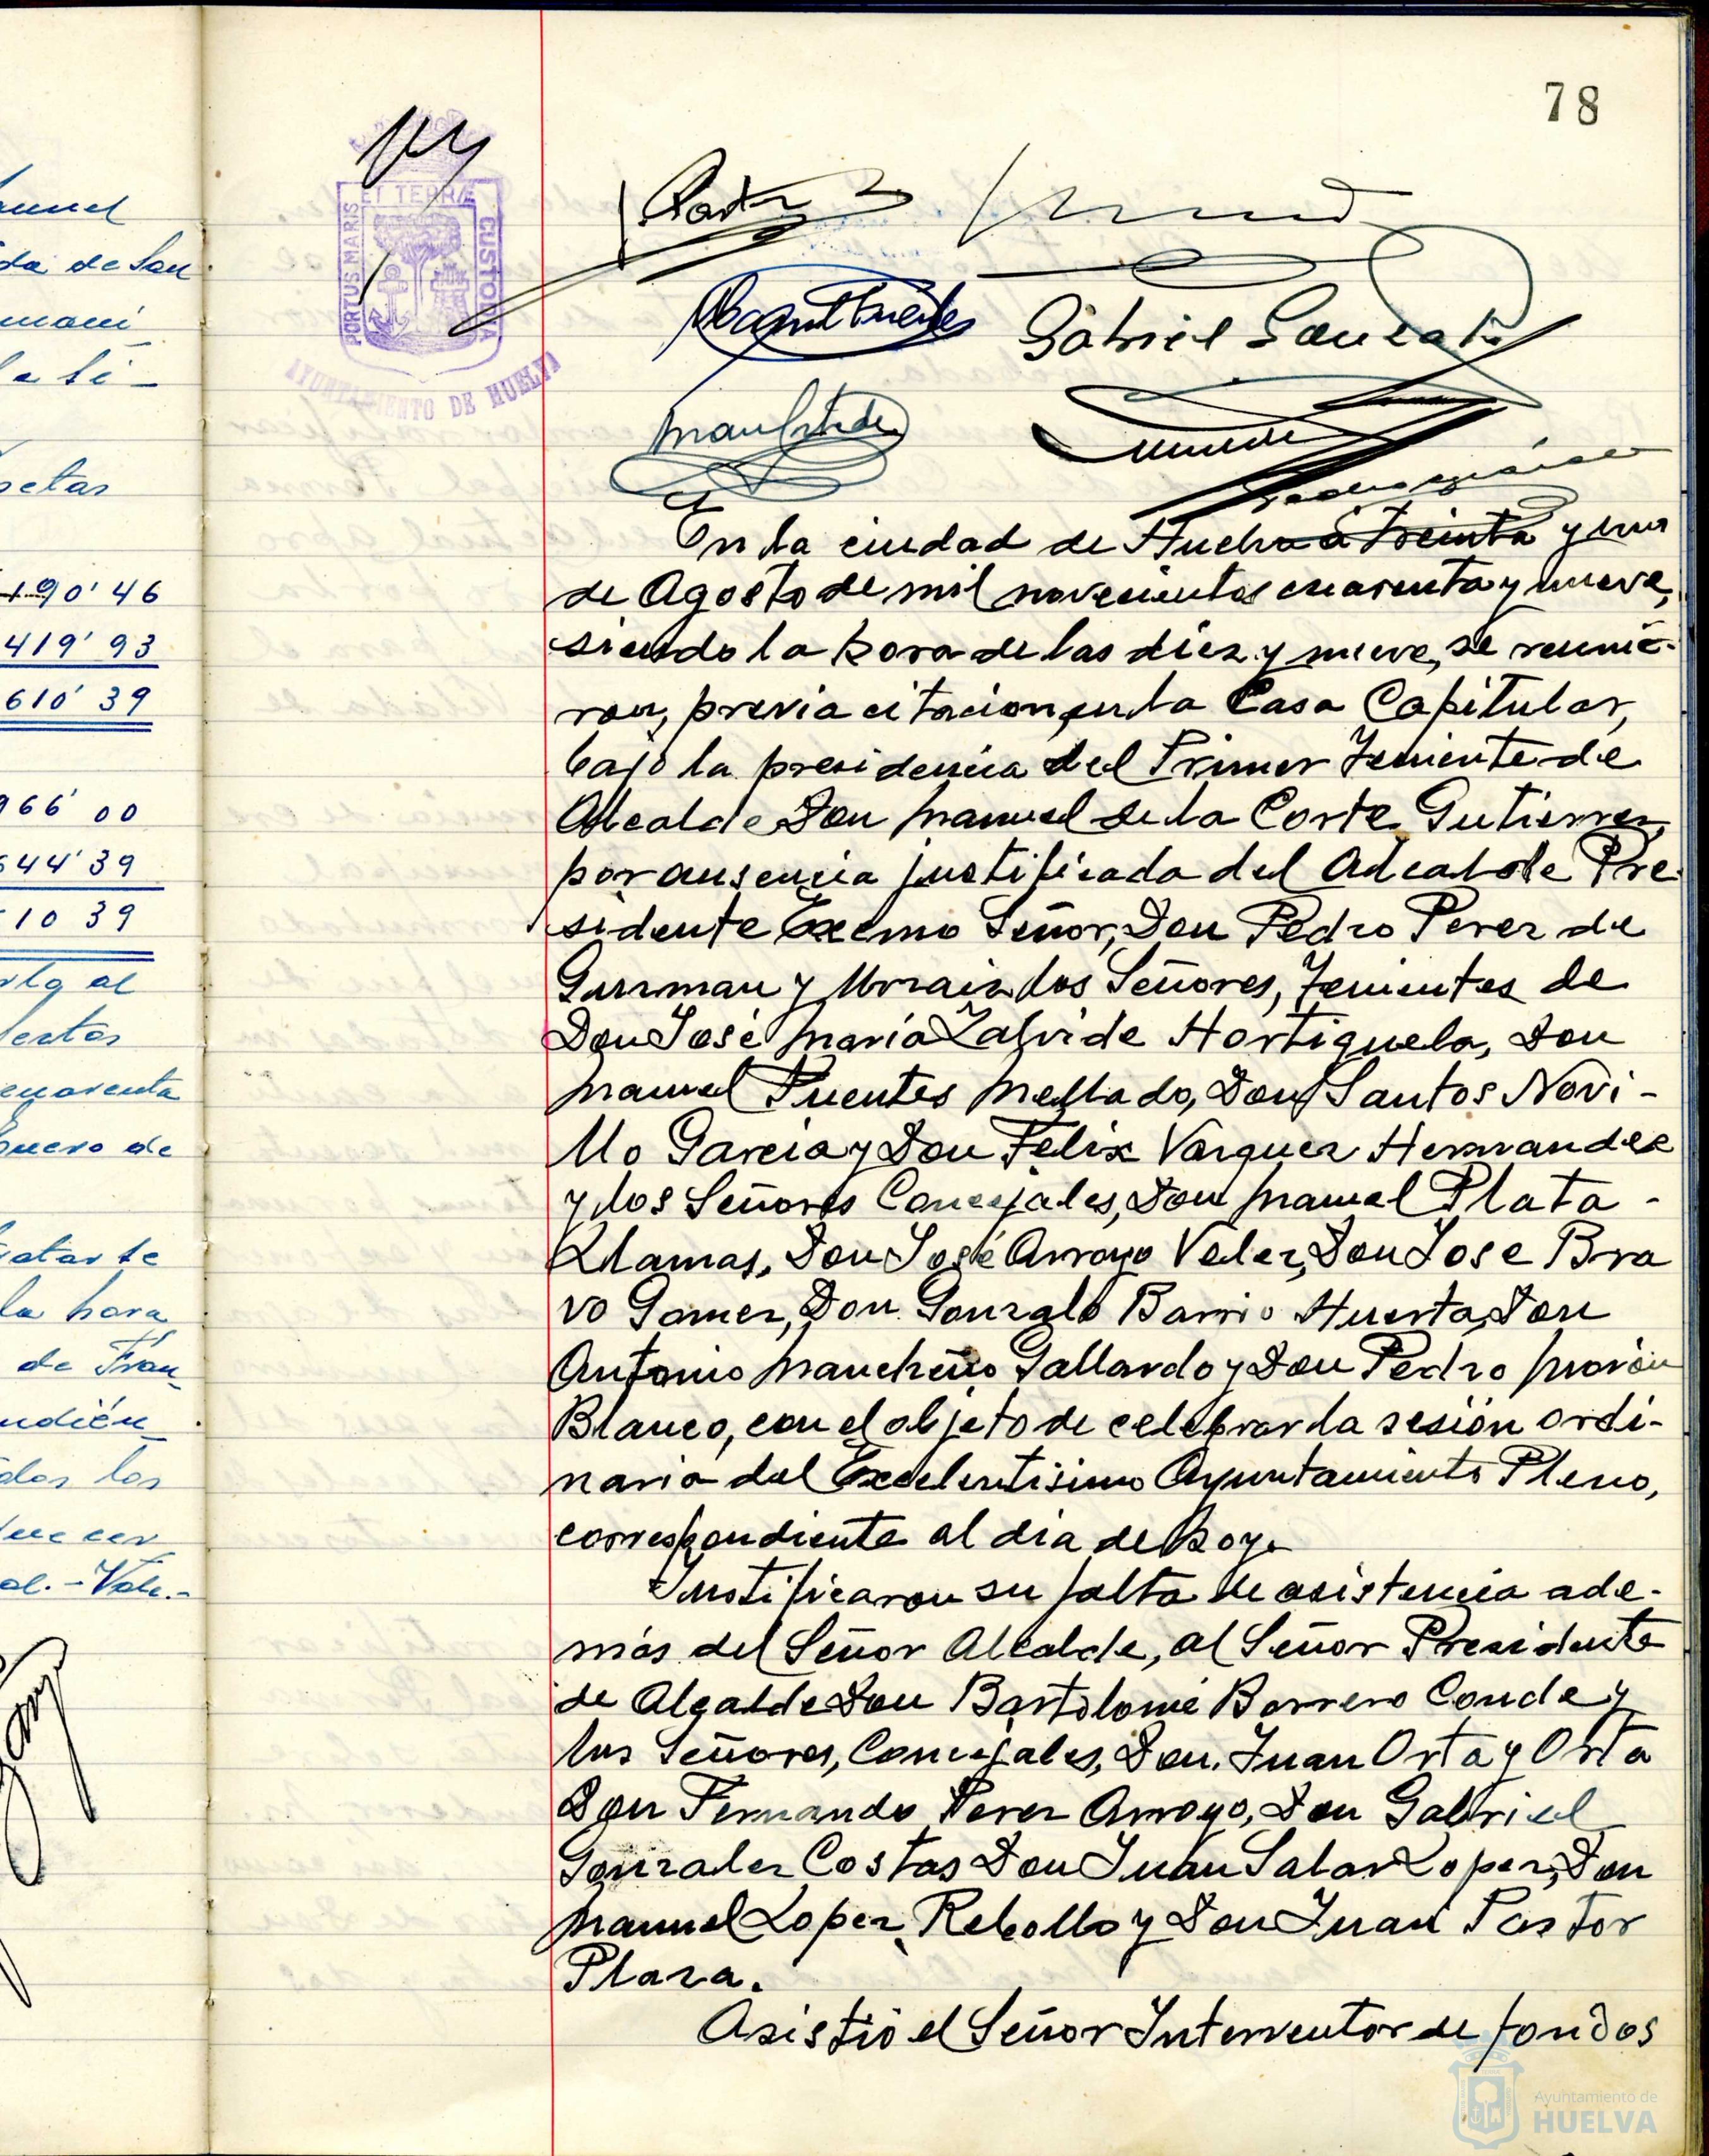 78
ET TERRÆ
PORTUS MARIS
CUSTODIA
AYUNTAMIENTO DE HUELVA
Gabriel
unel
da de San
mani
a li-
setas
190'46
419'93
610'39
966'00
644'39
10 39
al
ertos
cuarenta
nuero de
tratarse
la hora
de Fran
ndién
dos los
cer
al.-Vale.-
En la ciudad de Huelva a treinta y uno
de Agosto de mil novecientos cuarenta y nueve,
siendo la hora de las diez y nueve, se reunie-
ron, previa citacion, en la Casa Capitular,
bajo la presidencia del Primer Teniente de
Alcalde Don Manuel de la Corte Gutierrez,
por ausencia justificada del Alcalde Pre-
sidente Excmo Señor, Don Pedro Perez de
Guzman y Urzaiz, los Señores, Tenientes de
Don José María Zalvide Hortiguela, Don
Manuel Fuentes Mellado, Don Santos Novi-
llo Garcia y Don Felix Vazquez Hernandez
y los Señores Concejales, Don Manuel Plata-
Llamas, Don José Arroyo Velez, Don Jose Bra
vo Gomez, Don Gonzalo Barrio Huerta, Don
Antonio Mancheño Gallardo y Don Pedro Morón
Blanco, con el objeto de celebrar la sesión ordi-
naria del Excelentisimo Ayuntamiento Pleno,
correspondiente al dia de hoy.
Justificaron su falta de asistencia ade-
más del Señor Alcalde, al Señor Presidente
de Alcalde Don Bartolomé Borrero Conde y
los Señores, Concejales, Don Juan Orta y Orta
Don Fernando Perez Arroyo, Don Gabriel
Gonzalez Costas Don Juan Salar Lopez, Don
Manuel Lopez Rebollo y Don Juan Pastor
Plaza.
Asistió el Señor Interventor de fondos
Ayuntamiento de
HUELVA